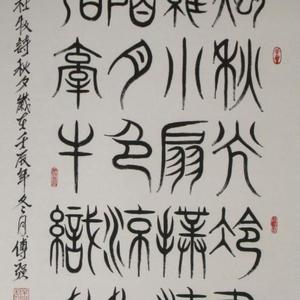 燭秋光冷畫
羅小扇撲流
階月色涼如
看牽牛織
杜牧詩秋夕歲在壬辰年冬月傅強